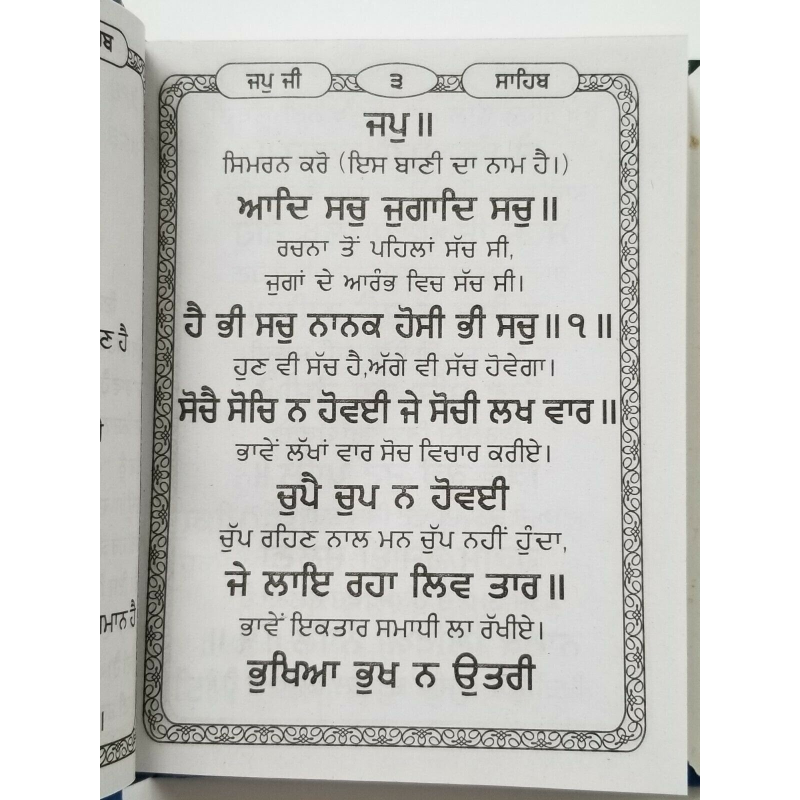 ਹਿਬ
ਣ ਹੈ
ਸਮਾਨ ਹੈ
ਜਪੁ ਜੀ ੩ ਸਾਹਿਬ
ਜਪੁ॥
ਸਿਮਰਨ ਕਰੋ (ਇਸ ਬਾਣੀ ਦਾ ਨਾਮ ਹੈ।)
ਆਦਿ ਸਚੁ ਜੁਗਾਦਿ ਸਚੁ॥
ਰਚਨਾ ਤੋਂ ਪਹਿਲਾਂ ਸੱਚ ਸੀ,
ਜੁਗਾਂ ਦੇ ਆਰੰਭ ਵਿਚ ਸੱਚ ਸੀ।
ਹੈ ਭੀ ਸਚੁ ਨਾਨਕ ਹੋਸੀ ਭੀ ਸਚੁ॥੧॥
ਹੁਣ ਵੀ ਸੱਚ ਹੈ,ਅੱਗੇ ਵੀ ਸੱਚ ਹੋਵੇਗਾ।
ਸੋਚੈ ਸੋਚਿ ਨ ਹੋਵਈ ਜੇ ਸੋਚੀ ਲਖ ਵਾਰ॥
ਭਾਵੇਂ ਲੱਖਾਂ ਵਾਰ ਸੋਚ ਵਿਚਾਰ ਕਰੀਏ।
ਚੁਪੈ ਚੁਪ ਨ ਹੋਵਈ
ਚੁੱਪ ਰਹਿਣ ਨਾਲ ਮਨ ਚੁੱਪ ਨਹੀਂ ਹੁੰਦਾ,
ਜੇ ਲਾਇ ਰਹਾ ਲਿਵ ਤਾਰ॥
ਭਾਵੇਂ ਇਕਤਾਰ ਸਮਾਧੀ ਲਾ ਰੱਖੀਏ।
ਭੁਖਿਆ ਭੁਖ ਨ ਉਤਰੀ